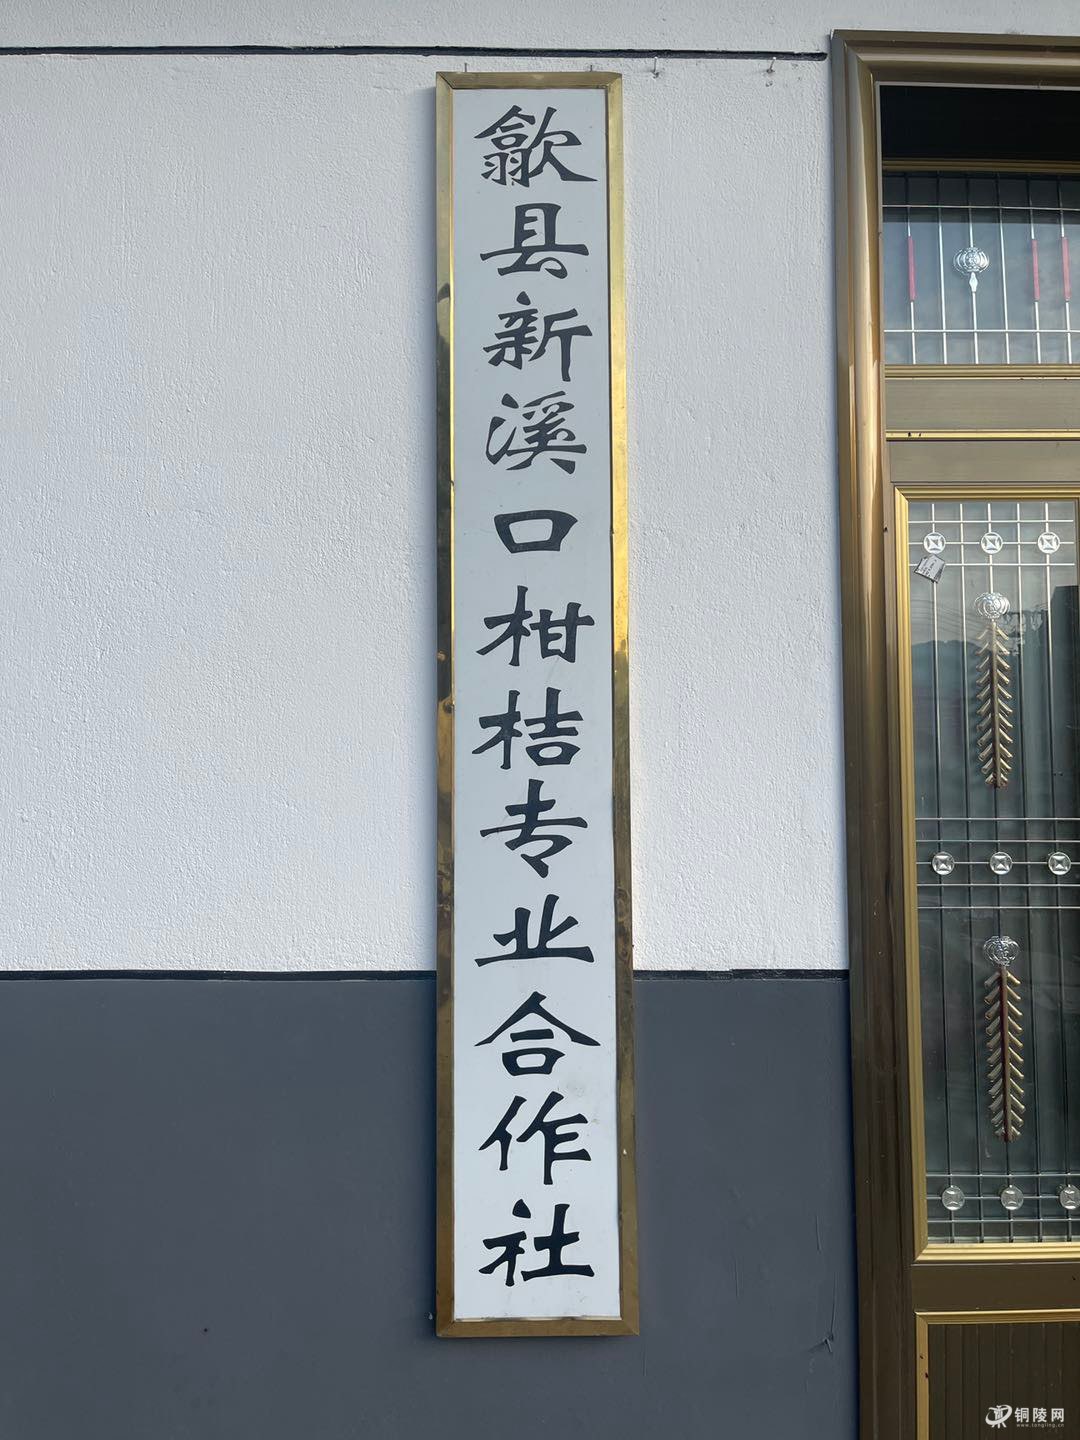 歙县新溪口柑桔专业合作社
铜陵网
www.tongling.cn